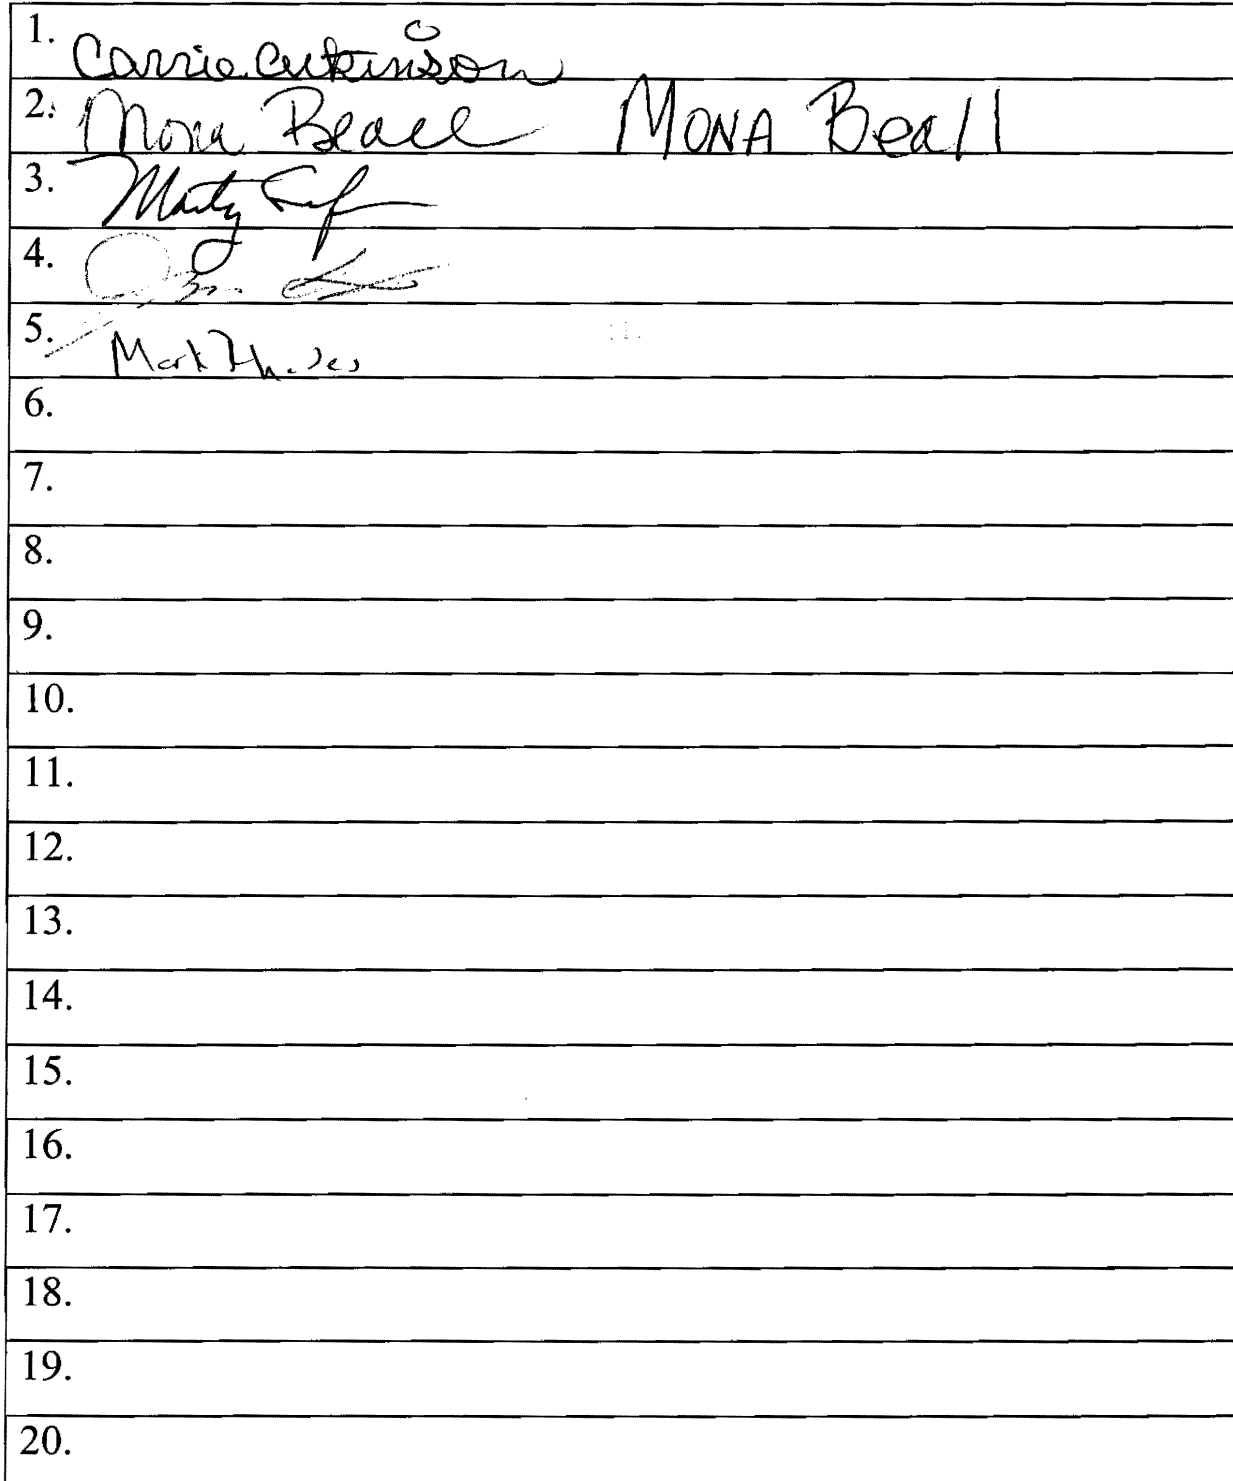 1. Carrie Atkinson
2. Mona Beall MONA Beall
3. Marty
4.
5. Mark Rhodes
6.
7.
8.
9.
10.
11.
12.
13.
14.
15.
16.
17.
18.
19.
20.